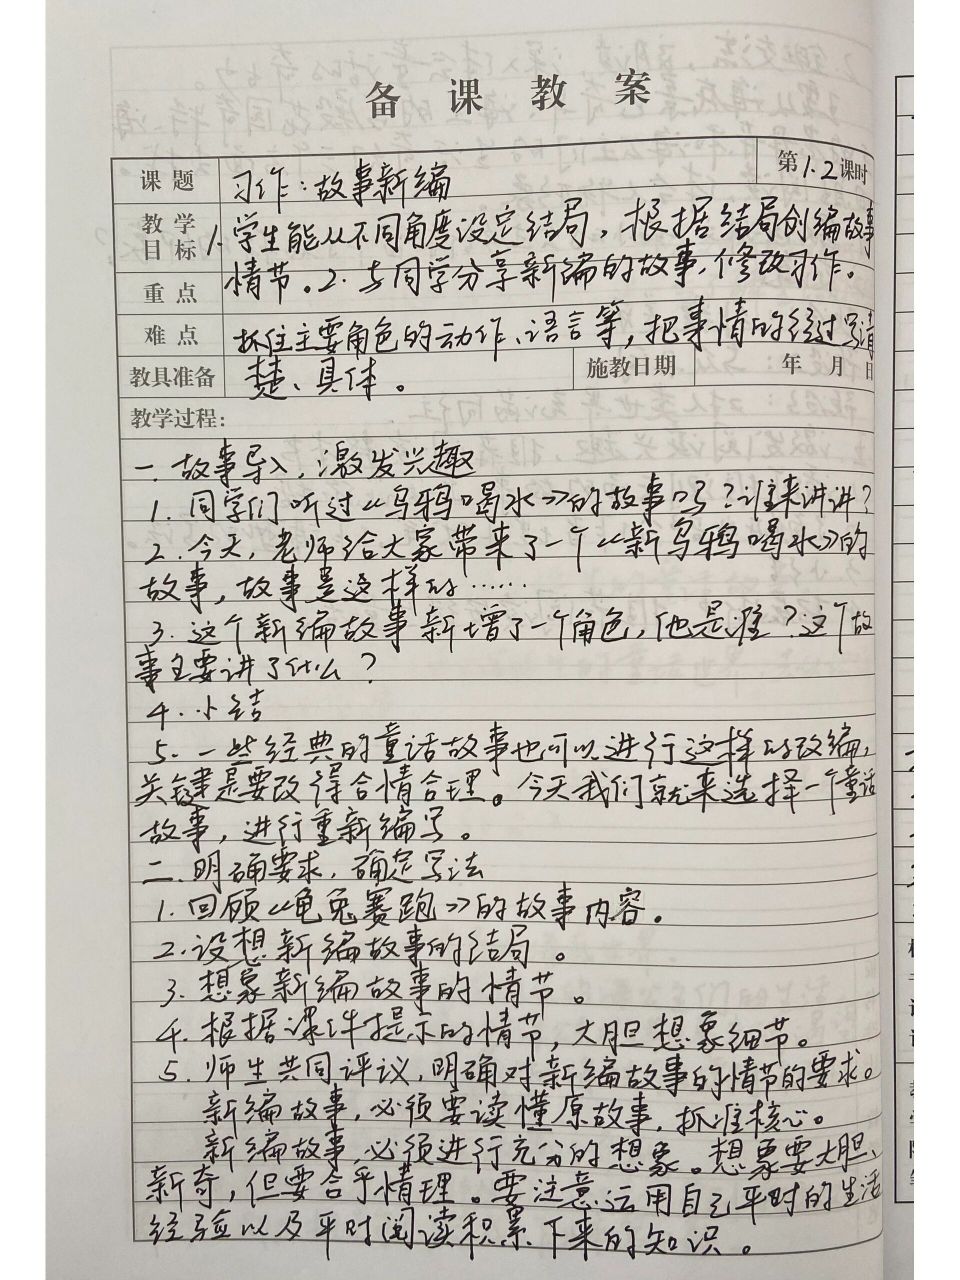 备课教案
课题 习作：故事新编 第1.2课时
教学目标 1.学生能从不同角度设定结局，根据结局创编故事
情节。2.与同学分享新编的故事，修改习作。
重点
难点 抓住主要角色的动作、语言等，把事情的经过写清
教具准备 楚、具体。 施教日期 年 月 日
教学过程：
一.故事导入，激发兴趣
1.同学们听过《乌鸦喝水》的故事吗？谁来讲讲？
2.今天，老师给大家带来了一个《新乌鸦喝水》的
故事，故事是这样的……
3.这个新编故事新增了一个角色，他是谁？这个故
事主要讲了什么？
4.小结
5.一些经典的童话故事也可以进行这样的改编，
关键是要改得合情合理。今天我们就来选择一个童话
故事，进行重新编写。
二.明确要求，确定写法
1.回顾《龟兔赛跑》的故事内容。
2.设想新编故事的结局。
3.想象新编故事的情节。
4.根据课件提示的情节，大胆想象细节。
5.师生共同评议，明确对新编故事的情节的要求。
新编故事，必须要读懂原故事，抓准核心。
新编故事，必须进行充分的想象。想象要大胆、
新奇，但要合乎情理。要注意运用自己平时的生活
经验以及平时阅读积累下来的知识。